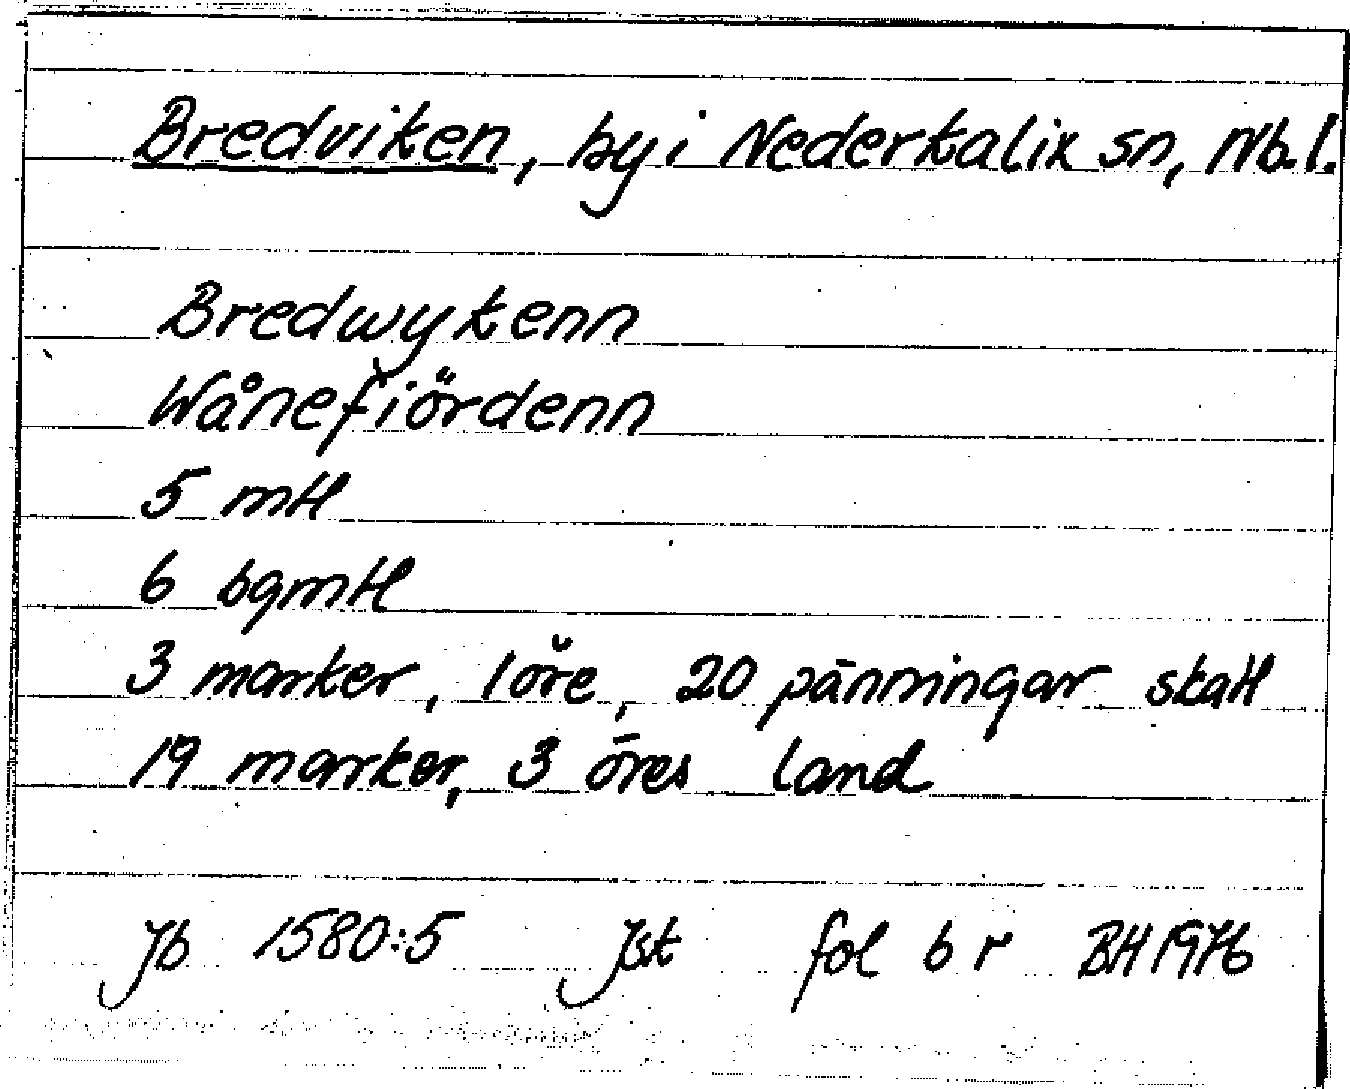 Bredviken, by i Nederkalix sn, Nb. l.
Bredwykenn
Wånefiördenn
5 mtl
6 bgmtl
3 marker, 1 öre, 20 pänningar skatt
19 marker, 3 öres land
Jb 1580:5 Jst fol 6 r BH 1976